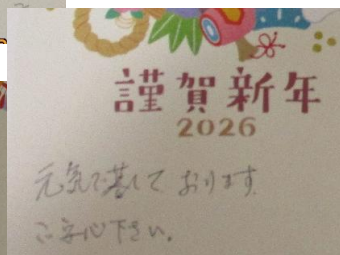 謹賀新年
2026
元気で暮して おります.
ご安心下さい.